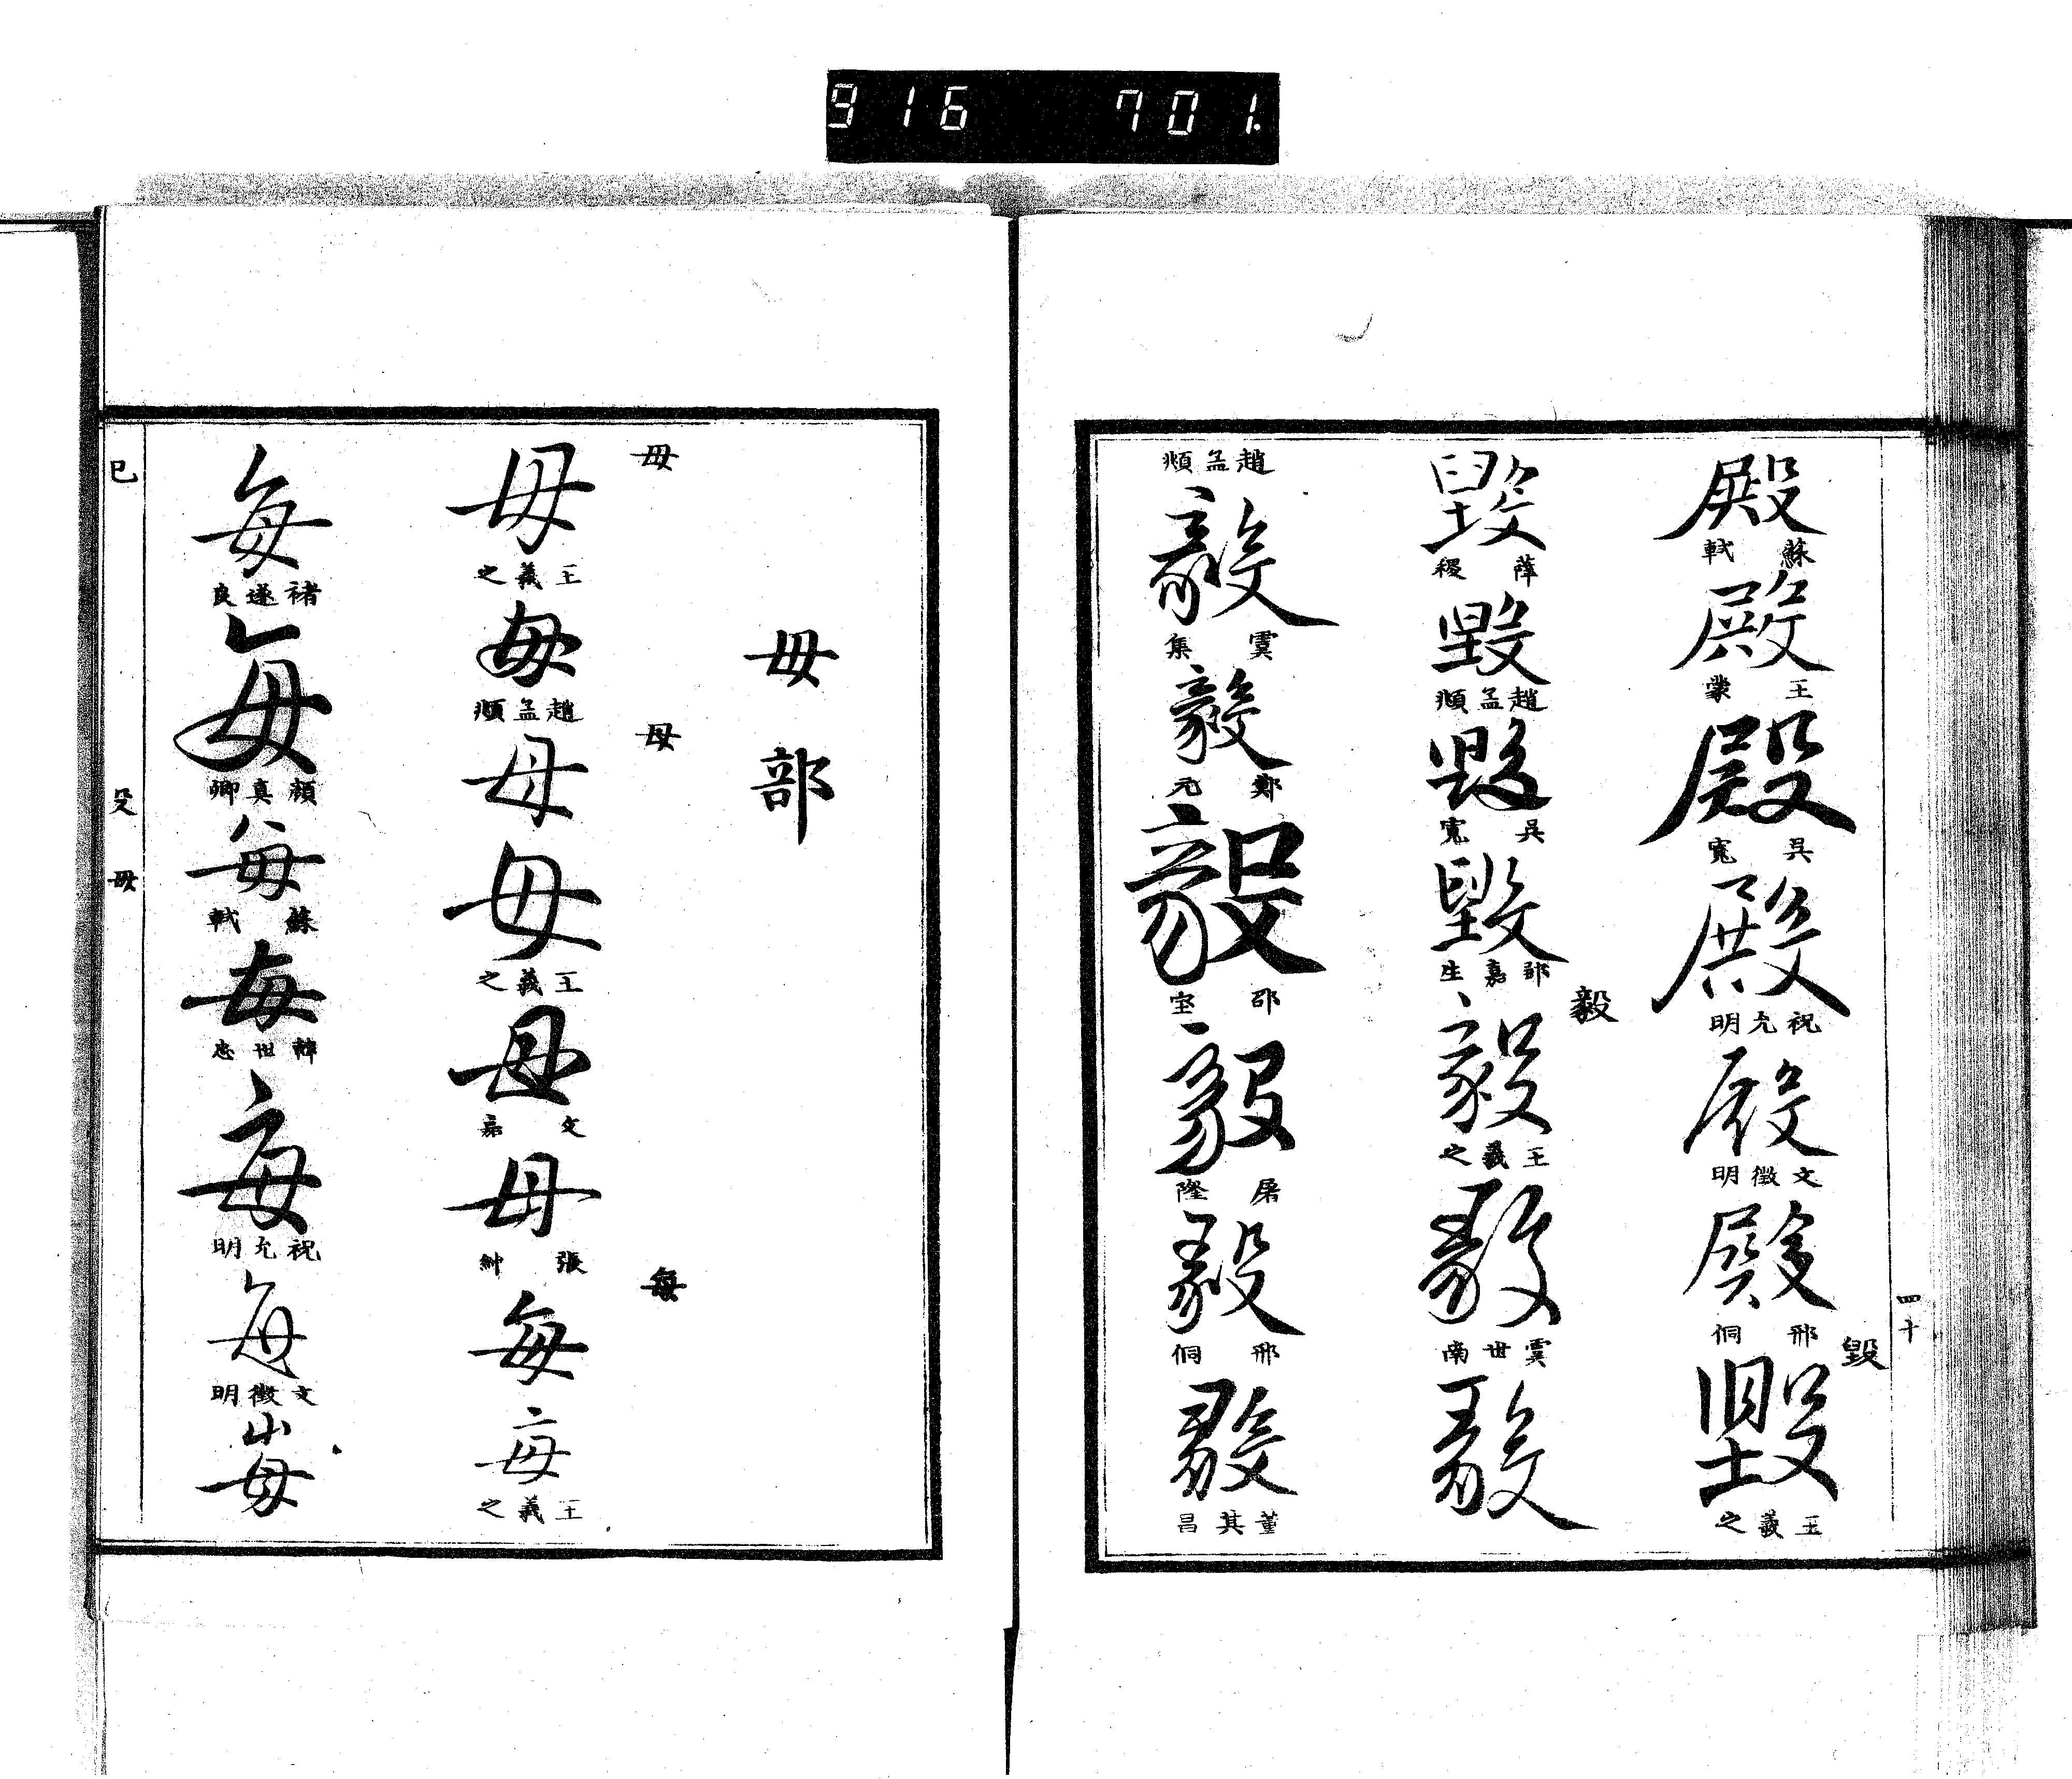 916 701.
四十
殿 蘇軾 殿 王蒙 殿 吳寬 殿 祝允明 殿 文徵明 殿 邢侗 毀 毀 王羲之
毀 薛稷 毀 趙孟頫 毀 吳寬 毀 邵嘉生 毅 毅 王羲之 毅 虞世南 毅
趙孟頫 毅 虞集 毅 鄭元 毅 邵宝 毅 屠隆 毅 邢侗 毅 董其昌
毋部
毋 毋 王羲之 毋 趙孟頫 母 母 母 王羲之 母 文嘉 母 張紳 每 每 每 王羲之
每 褚遂良 每 顏真卿 每 蘇軾 每 韓世忠 每 祝允明 每 文徵明 每
巳 殳 毋